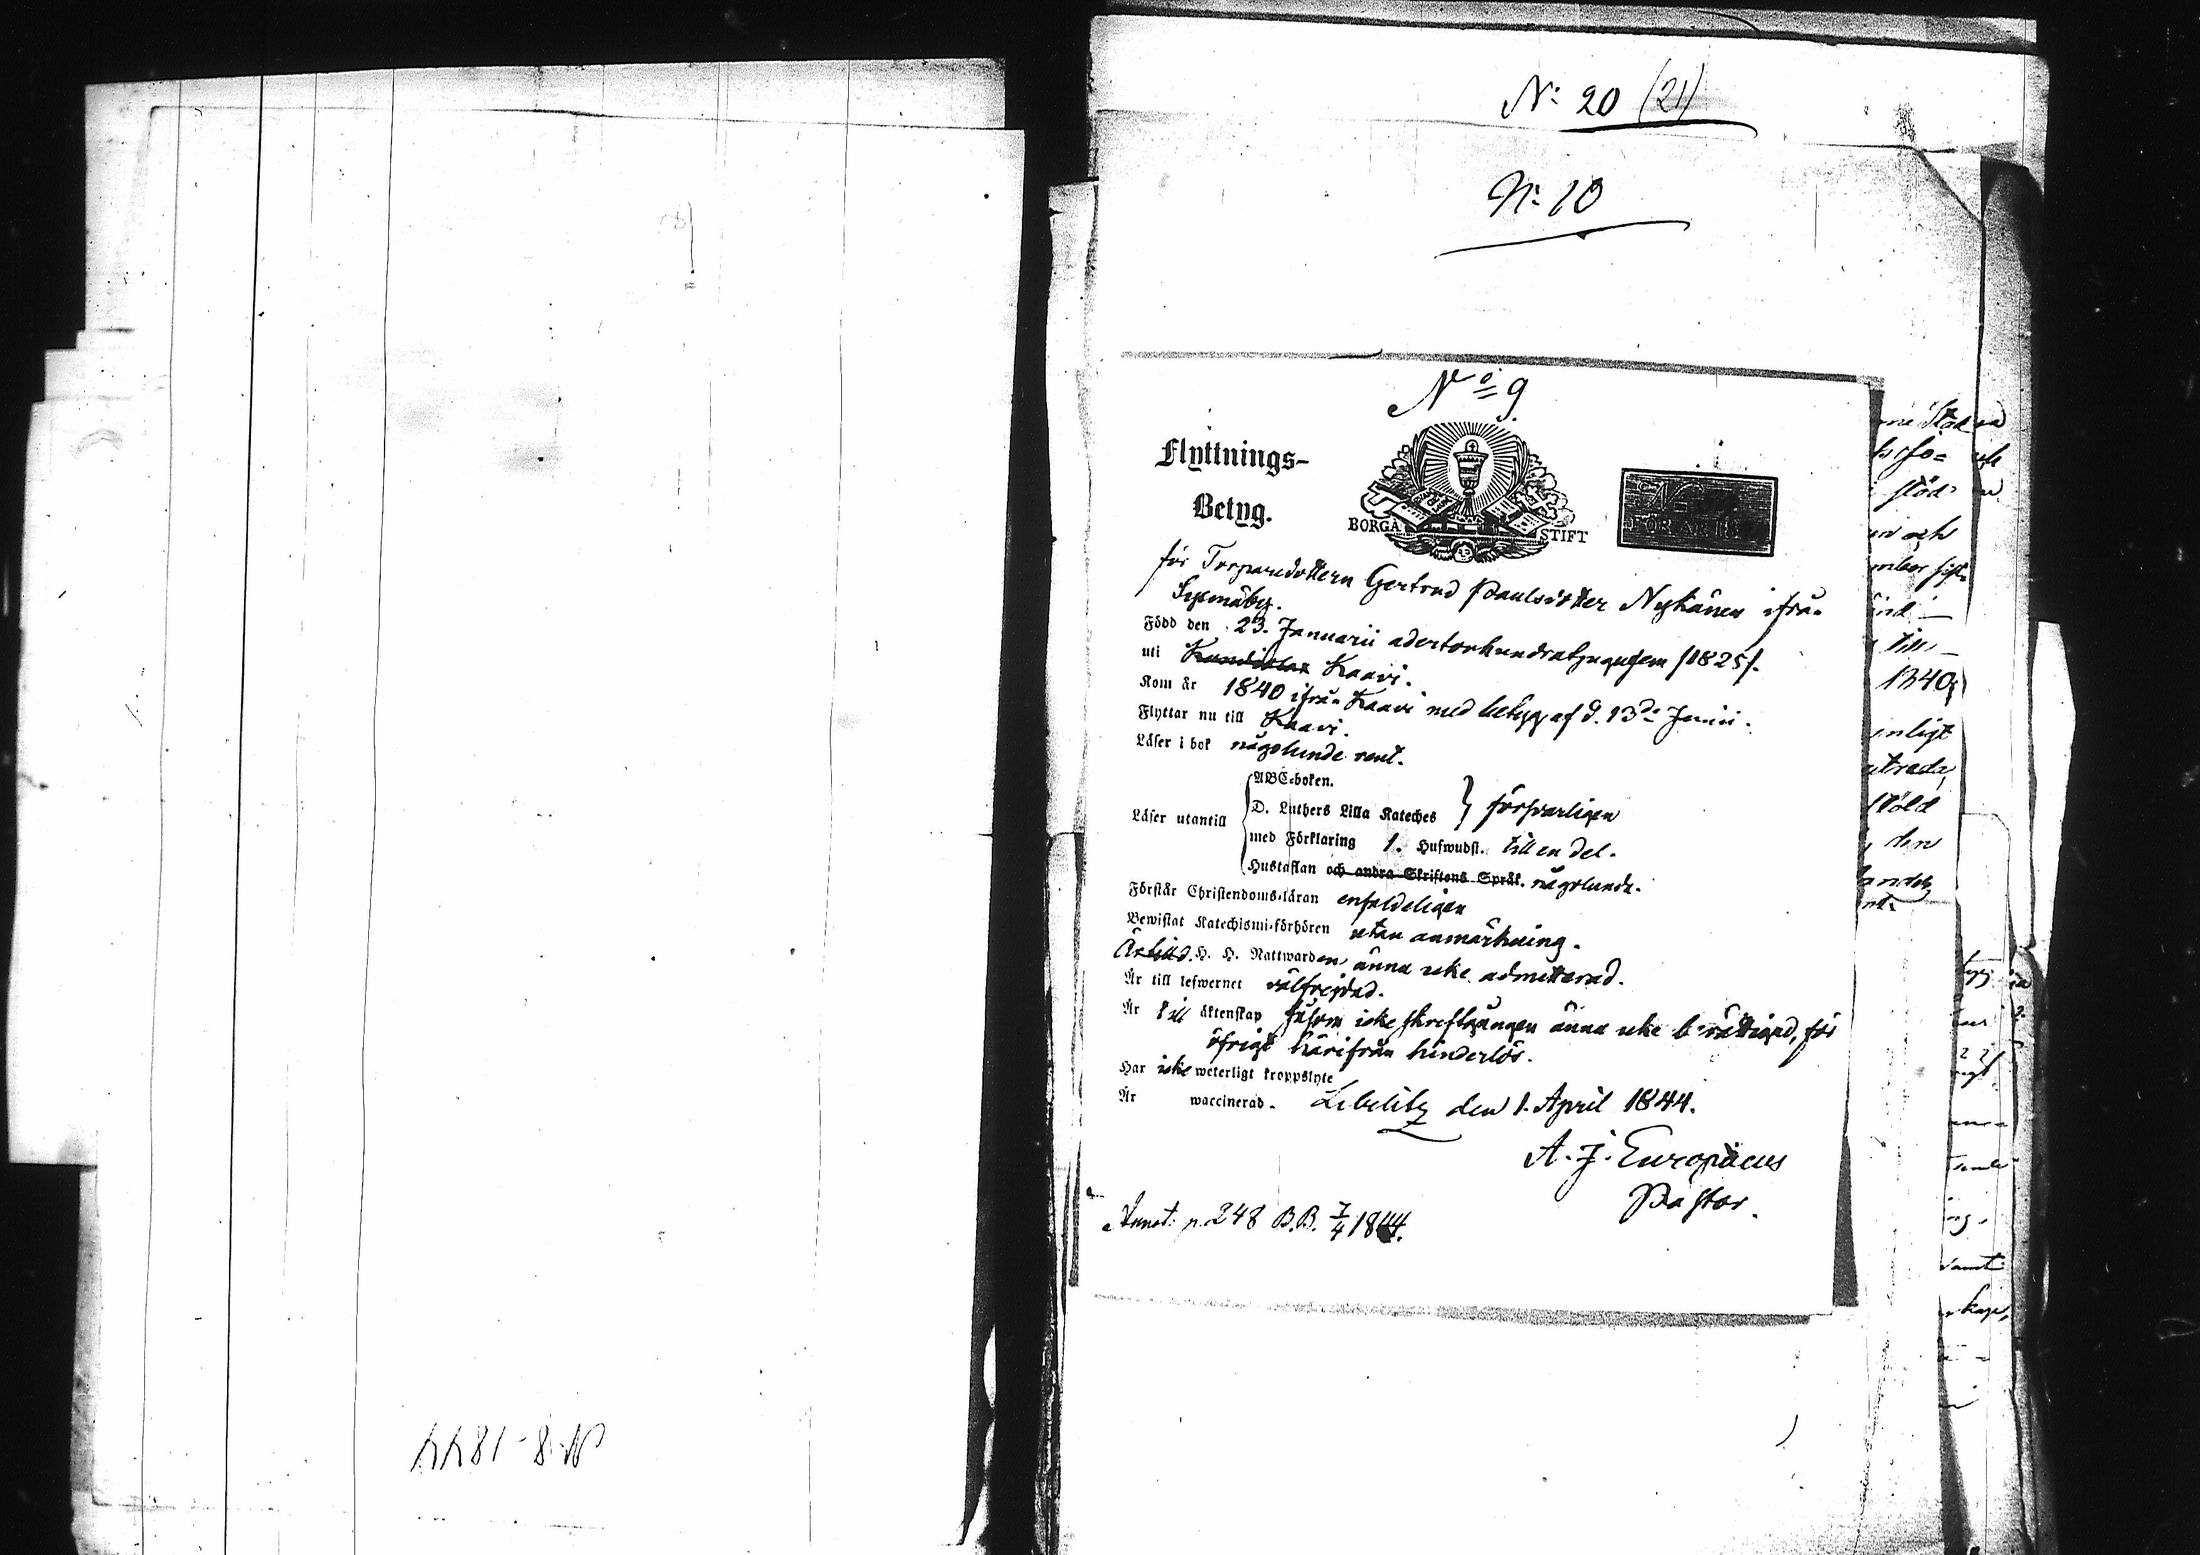 N: 8-1844
N: 20 (21)
N: 10
No 9
Flyttnings-
Betyg.
BORGÅ STIFT
för Torparedottern Gertrud Paulsdotter Nykänen ifrån
Sysmäby.
Född den 23. Januarii adertonhundratjugufem /1825/.
uti Kaavi.
Kom år 1840 ifrån Kaavi med betyg af d. 13de Junii.
Flyttar nu till Kaavi.
Läser i bok någolunde rent.
Läser utantill
ABC-boken.
D. Luthers Lilla Kateches } försvarligen
med Förklaring 1. Hufwudst. till en del.
Hustaflan och andra Skriftens Språk. någolunde.
Förstår Christendoms-läran enfaldeligen
Bewistat Katechismi-förhören utan anmärkning.
Är till d. H. H. Nattwarden ännu icke admitterad.
Är till lefwernet välfrejdad.
Är till äktenskap såsom icke skriftgången ännu icke berättigad, för
öfrigt härifrån hinderlös.
Har icke weterligt kroppslyte
Är waccinerad. Libelitz den 1. April 1844.
A. J. Europæus
Pastor.
Annot: p. 248 B.B. 7/4 1844.
1840,
enligt
den